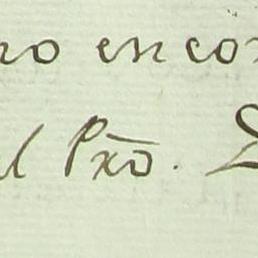 no encon
l Pxõ.